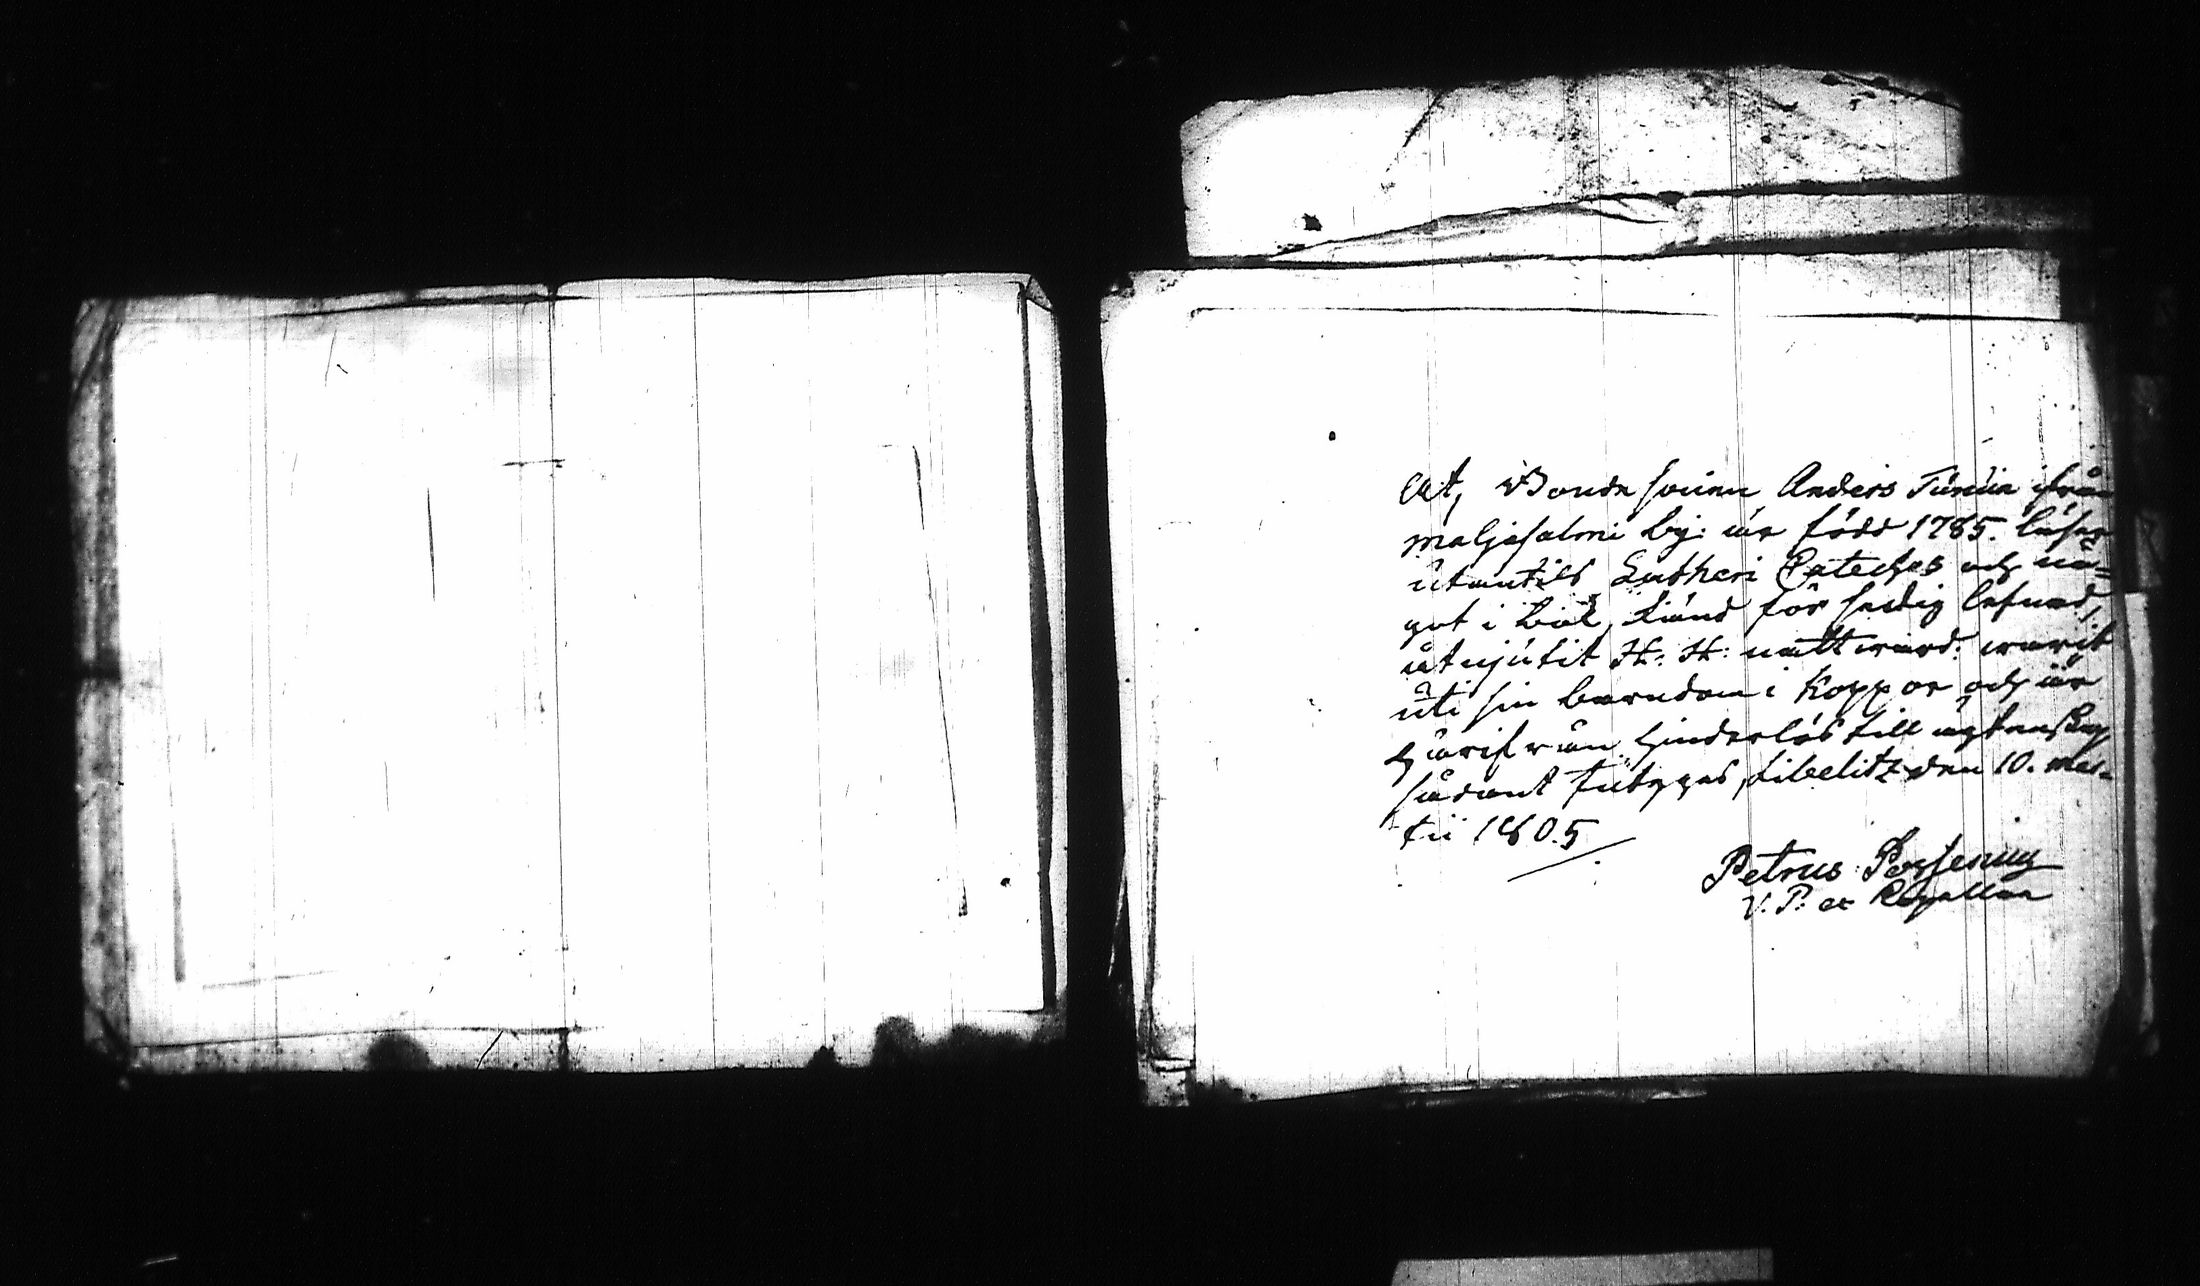 At, Bonde sonen Anders Turuin ifrån
maljasalmi by: är född 1785. läser
utantill Lutheri Cateches och nå=
got i bok, känd för sedig lefnad,
åtnjutit H. H. nattvard. warit
uti sin barndom i Koppor och är
härifrån hinderlös till ägtenskap
sådant intygas, Libelitz den 10. mar-
tii 1805
Petrus
V. P. et Capellan